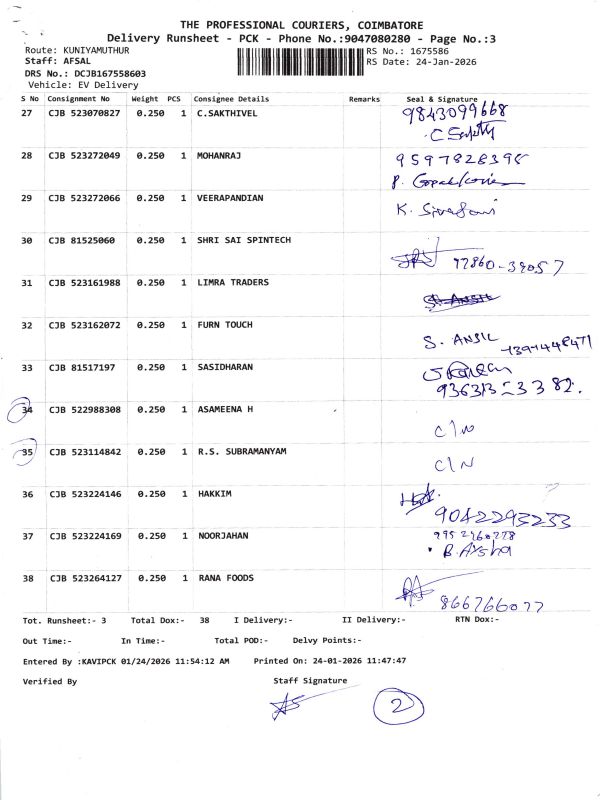 THE PROFESSIONAL COURIERS, COIMBATORE
Delivery Runsheet - PCK - Phone No.:9047080280 - Page No.:3
Route: KUNIYAMUTHUR RS No.: 1675586
Staff: AFSAL RS Date: 24-Jan-2026
DRS No.: DCJB167558603
Vehicle: EV Delivery
S No Consignment No Weight PCS Consignee Details Remarks Seal & Signature
27 CJB 523070827 0.250 1 C.SAKTHIVEL 9843099668
28 CJB 523272049 0.250 1 MOHANRAJ 9597828398
29 CJB 523272066 0.250 1 VEERAPANDIAN K.
30 CJB 81525060 0.250 1 SHRI SAI SPINTECH 77860-39057
31 CJB 523161988 0.250 1 LIMRA TRADERS S. ANSIL
32 CJB 523162072 0.250 1 FURN TOUCH S. ANSIL
33 CJB 81517197 0.250 1 SASIDHARAN
34 CJB 522988308 0.250 1 ASAMEENA H C/N
35 CJB 523114842 0.250 1 R.S. SUBRAMANYAM C/N
36 CJB 523224146 0.250 1 HAKKIM 9042293233
37 CJB 523224169 0.250 1 NOORJAHAN
B. Aysha
38 CJB 523264127 0.250 1 RANA FOODS 866766077
Tot. Runsheet:- 3 Total Dox:- 38 I Delivery:- II Delivery:- RTN Dox:-
Out Time:- In Time:- Total POD:- Delvy Points:-
Entered By :KAVIPCK 01/24/2026 11:54:12 AM Printed On: 24-01-2026 11:47:47
Verified By Staff Signature
2